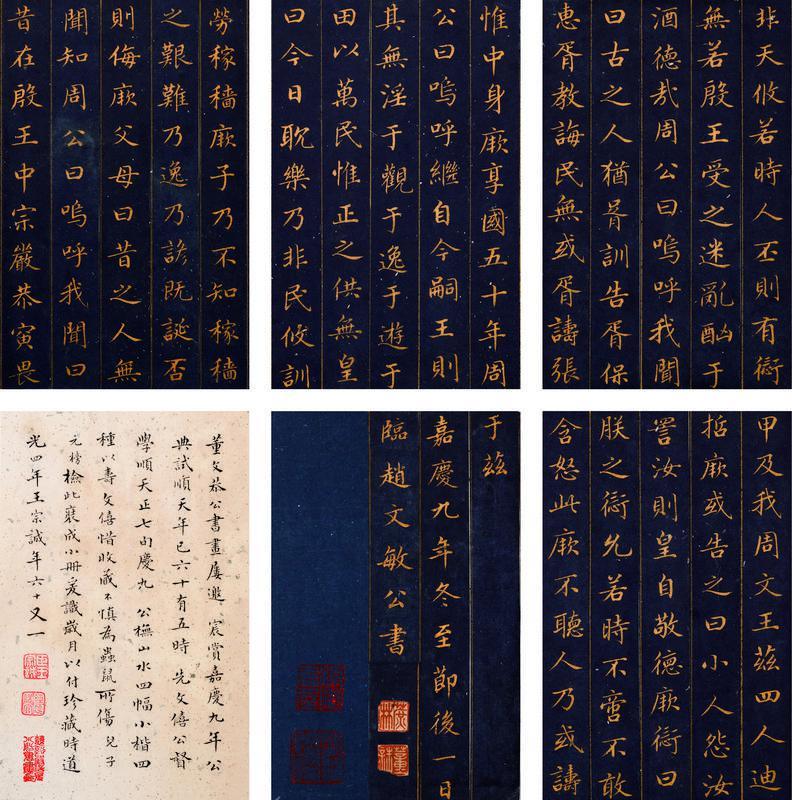 勞稼穡厥子乃不知稼穡
之艱難乃逸乃諺既誕否
則侮厥父母曰昔之人無
聞知周公曰嗚呼我聞曰
昔在殷王中宗嚴恭寅畏
惟中身厥享國五十年周
公曰嗚呼繼自今嗣王則
其無淫于觀于逸于遊于
田以萬民惟正之供無皇
曰今日耽樂乃非民攸訓
非天攸若時人丕則有愆
無若殷王受之迷亂酗于
酒德哉周公曰嗚呼我聞
曰古之人猶胥訓告胥保
惠胥教誨民無或胥譸張
甲及我周文王茲四人迪
哲厥或告之曰小人怨汝
詈汝則皇自敬德厥愆曰
朕之愆允若時不啻不敢
含怒此厥不聽人乃或譸
于茲
嘉慶九年冬至節後一日
臨趙文敏公書
董文恭公書畫屢邀 宸賞嘉慶九年公
典試順天年已六十有五時 先文僖公督
學順天正七旬慶九 公橅山水四幅小楷四
種以壽文僖惜收藏不慎為蟲鼠所傷 兒子
元榜檢此裝成小冊爰識歲月以付珍藏時道
光四年王宗誠年六十又一